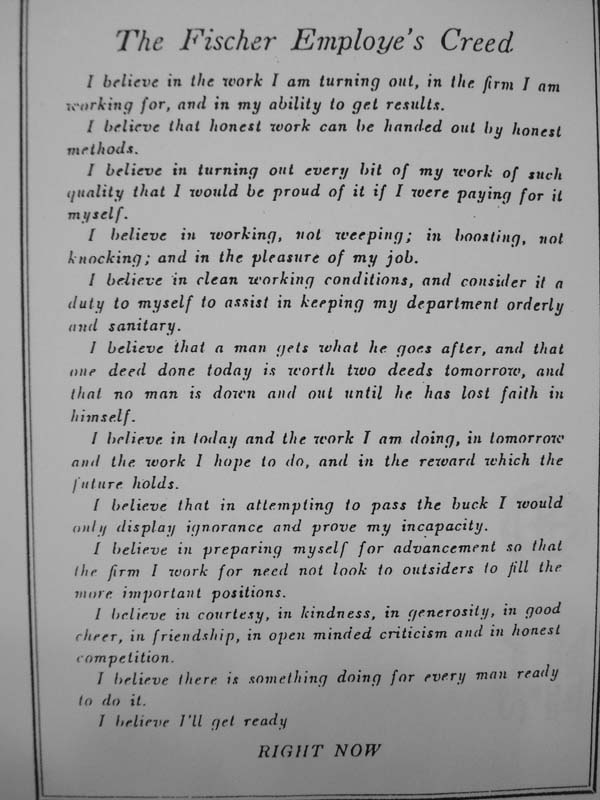 The Fischer Employe's Creed
I believe in the work I am turning out, in the firm I am
working for, and in my ability to get results.
I believe that honest work can be handed out by honest
methods.
I believe in turning out every bit of my work of such
quality that I would be proud of it if I were paying for it
myself.
I believe in working, not weeping; in boosting, not
knocking; and in the pleasure of my job.
I believe in clean working conditions, and consider it a
duty to myself to assist in keeping my department orderly
and sanitary.
I believe that a man gets what he goes after, and that
one deed done today is worth two deeds tomorrow, and
that no man is down and out until he has lost faith in
himself.
I believe in today and the work I am doing, in tomorrow
and the work I hope to do, and in the reward which the
future holds.
I believe that in attempting to pass the buck I would
only display ignorance and prove my incapacity.
I believe in preparing myself for advancement so that
the firm I work for need not look to outsiders to fill the
more important positions.
I believe in courtesy, in kindness, in generosity, in good
cheer, in friendship, in open minded criticism and in honest
competition.
I believe there is something doing for every man ready
to do it.
I believe I'll get ready
RIGHT NOW